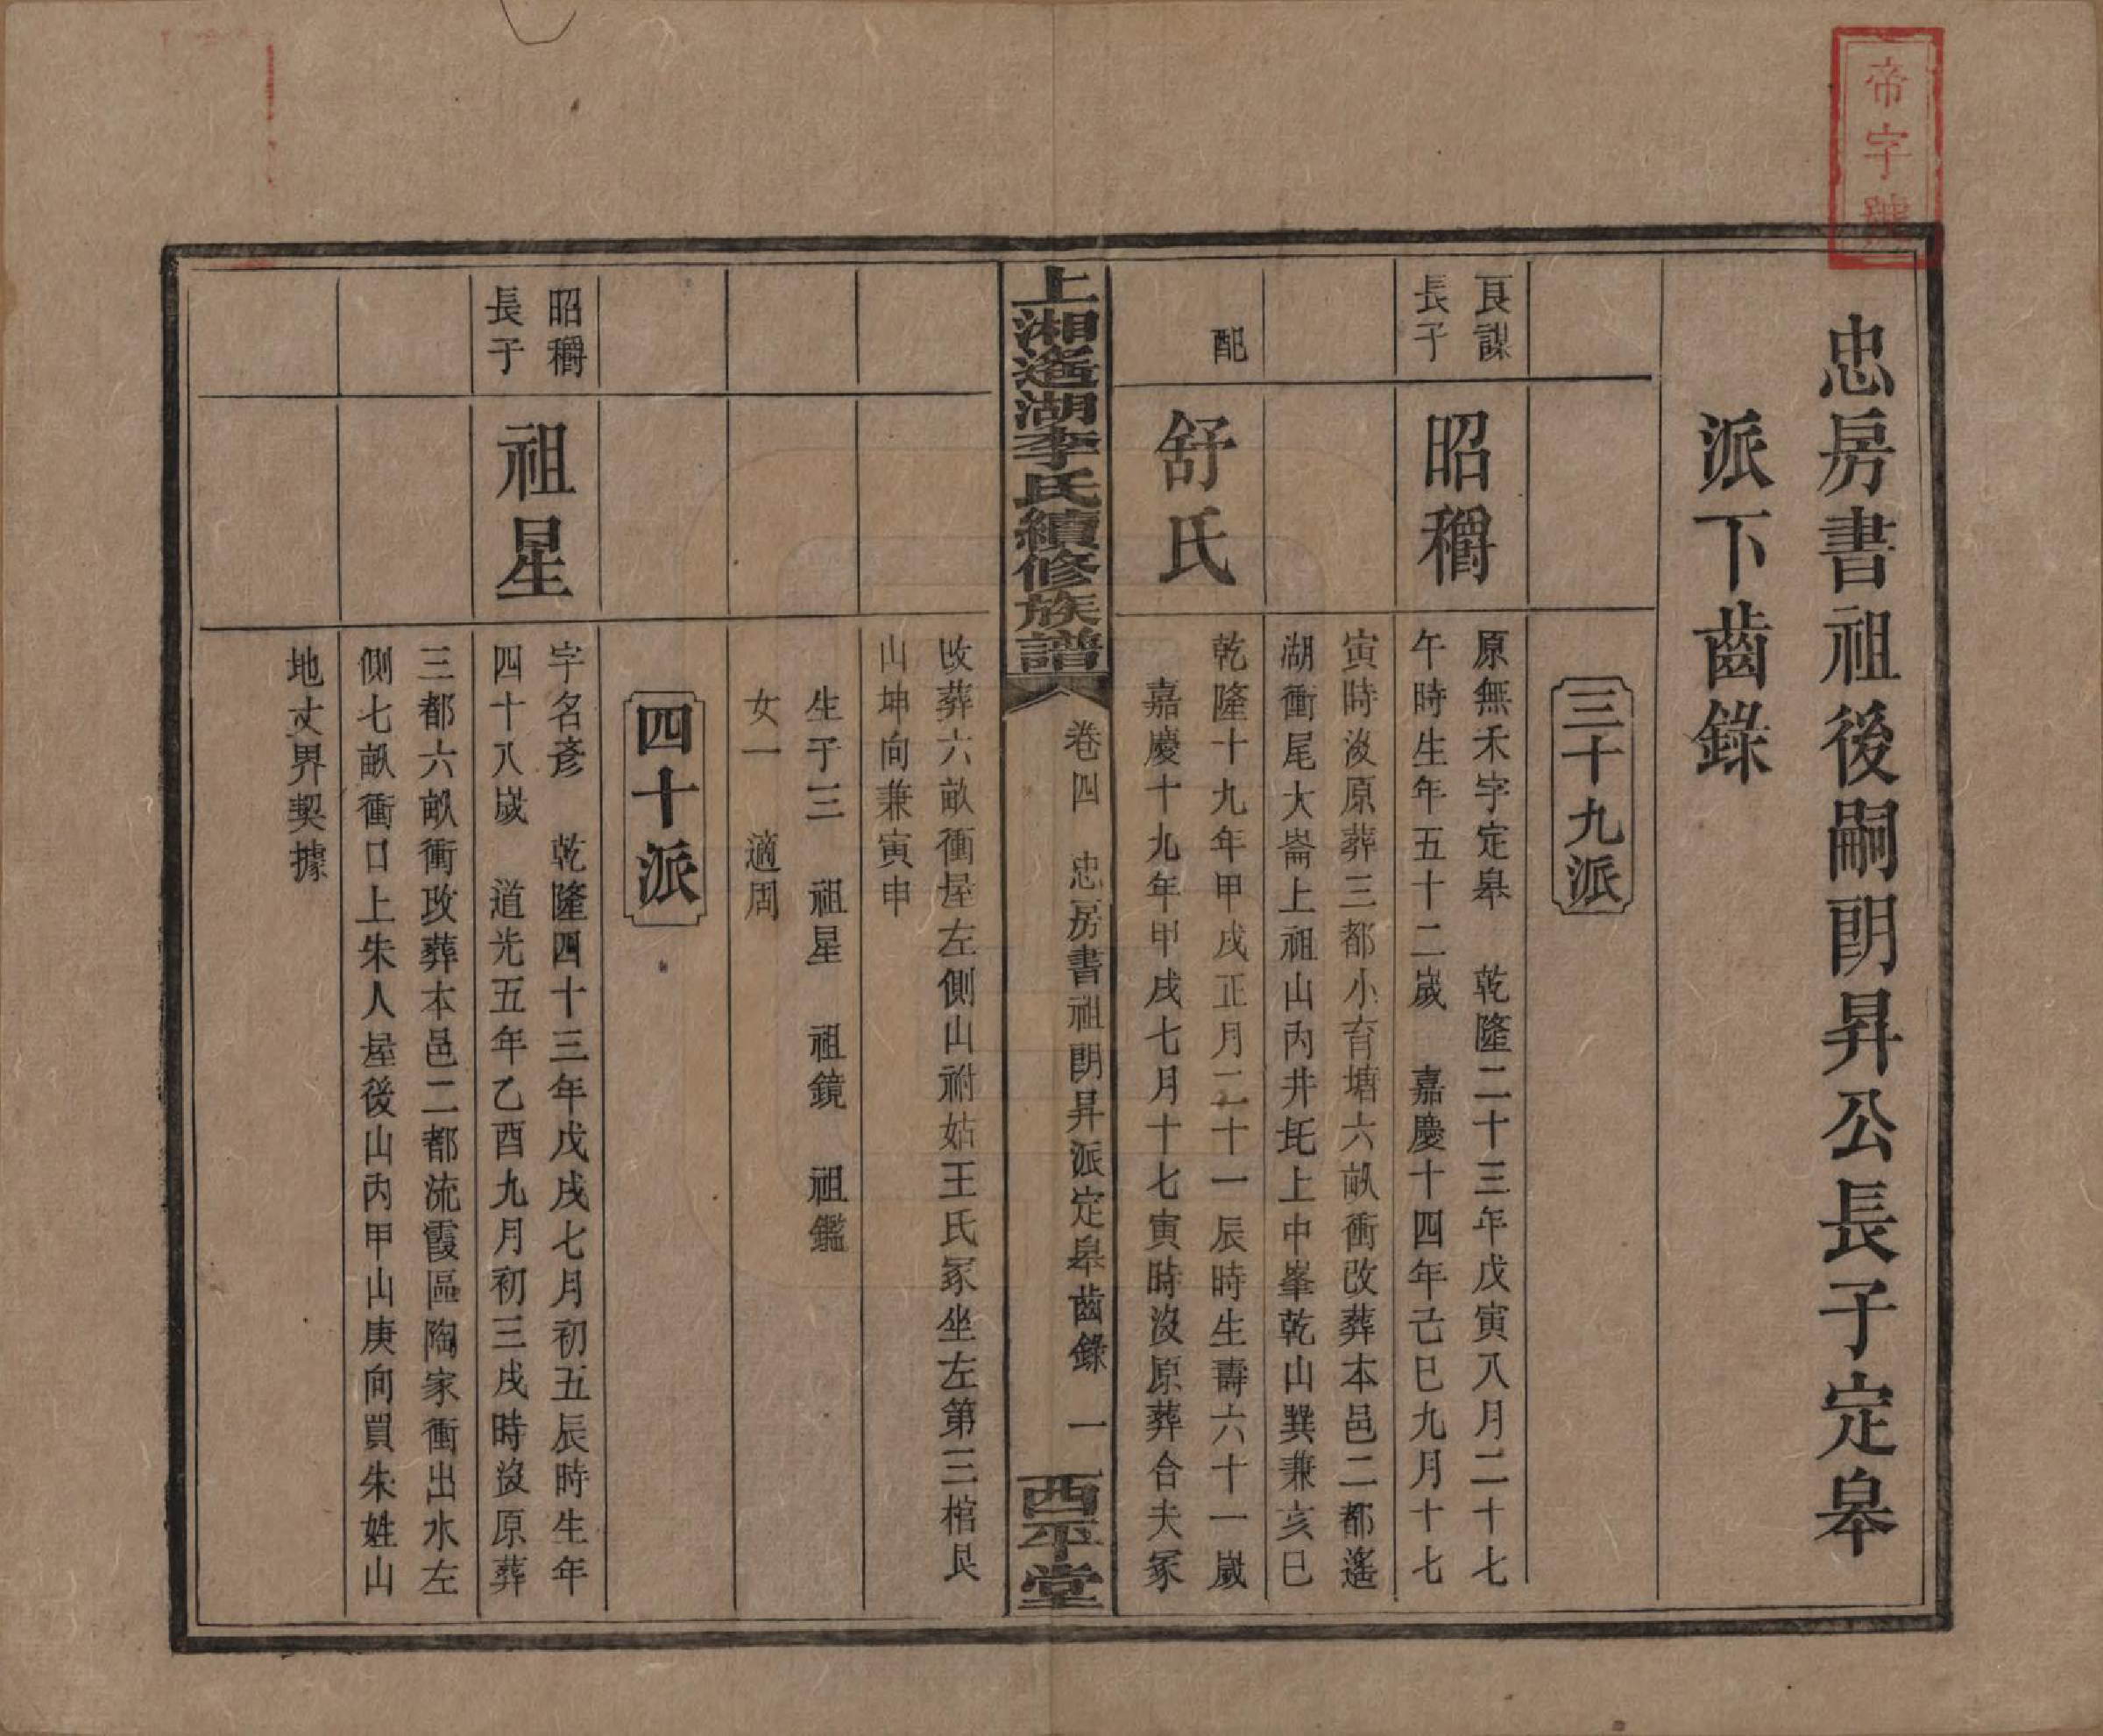 帝字號
忠房書祖後嗣朗昇公長子定皋
派下齒錄
三十九派
良謀
長子
昭穳
原無禾字定皋 乾隆二十三年戊寅八月二十七
午時生年五十二歲 嘉慶十四年己巳九月十七
寅時沒原葬三都小育塘六畝衝改葬本邑二都遙
湖衝尾大崙上祖山內井坉上中峯乾山巽兼亥巳
配
舒氏
乾隆十九年甲戌正月二十一辰時生壽六十一歲
嘉慶十九年甲戌七月十七寅時沒原葬合夫冢
上湘遙湖李氏續修族譜
卷四 忠房書祖朗昇派定皋齒錄 一
西平堂
改葬六畝衝屋左側山祔姑王氏冢坐左第三棺艮
山坤向兼寅申
生子三 祖星 祖鏡 祖鑑
女一 適周
四十派
昭穳
長子
祖星
字名彥 乾隆四十三年戊戌七月初五辰時生年
四十八歲 道光五年乙酉九月初三戌時沒原葬
三都六畝衝改葬本邑二都流霞區陶家衝出水左
側七畝衝口上朱人屋後山內甲山庚向買朱姓山
地丈界契據